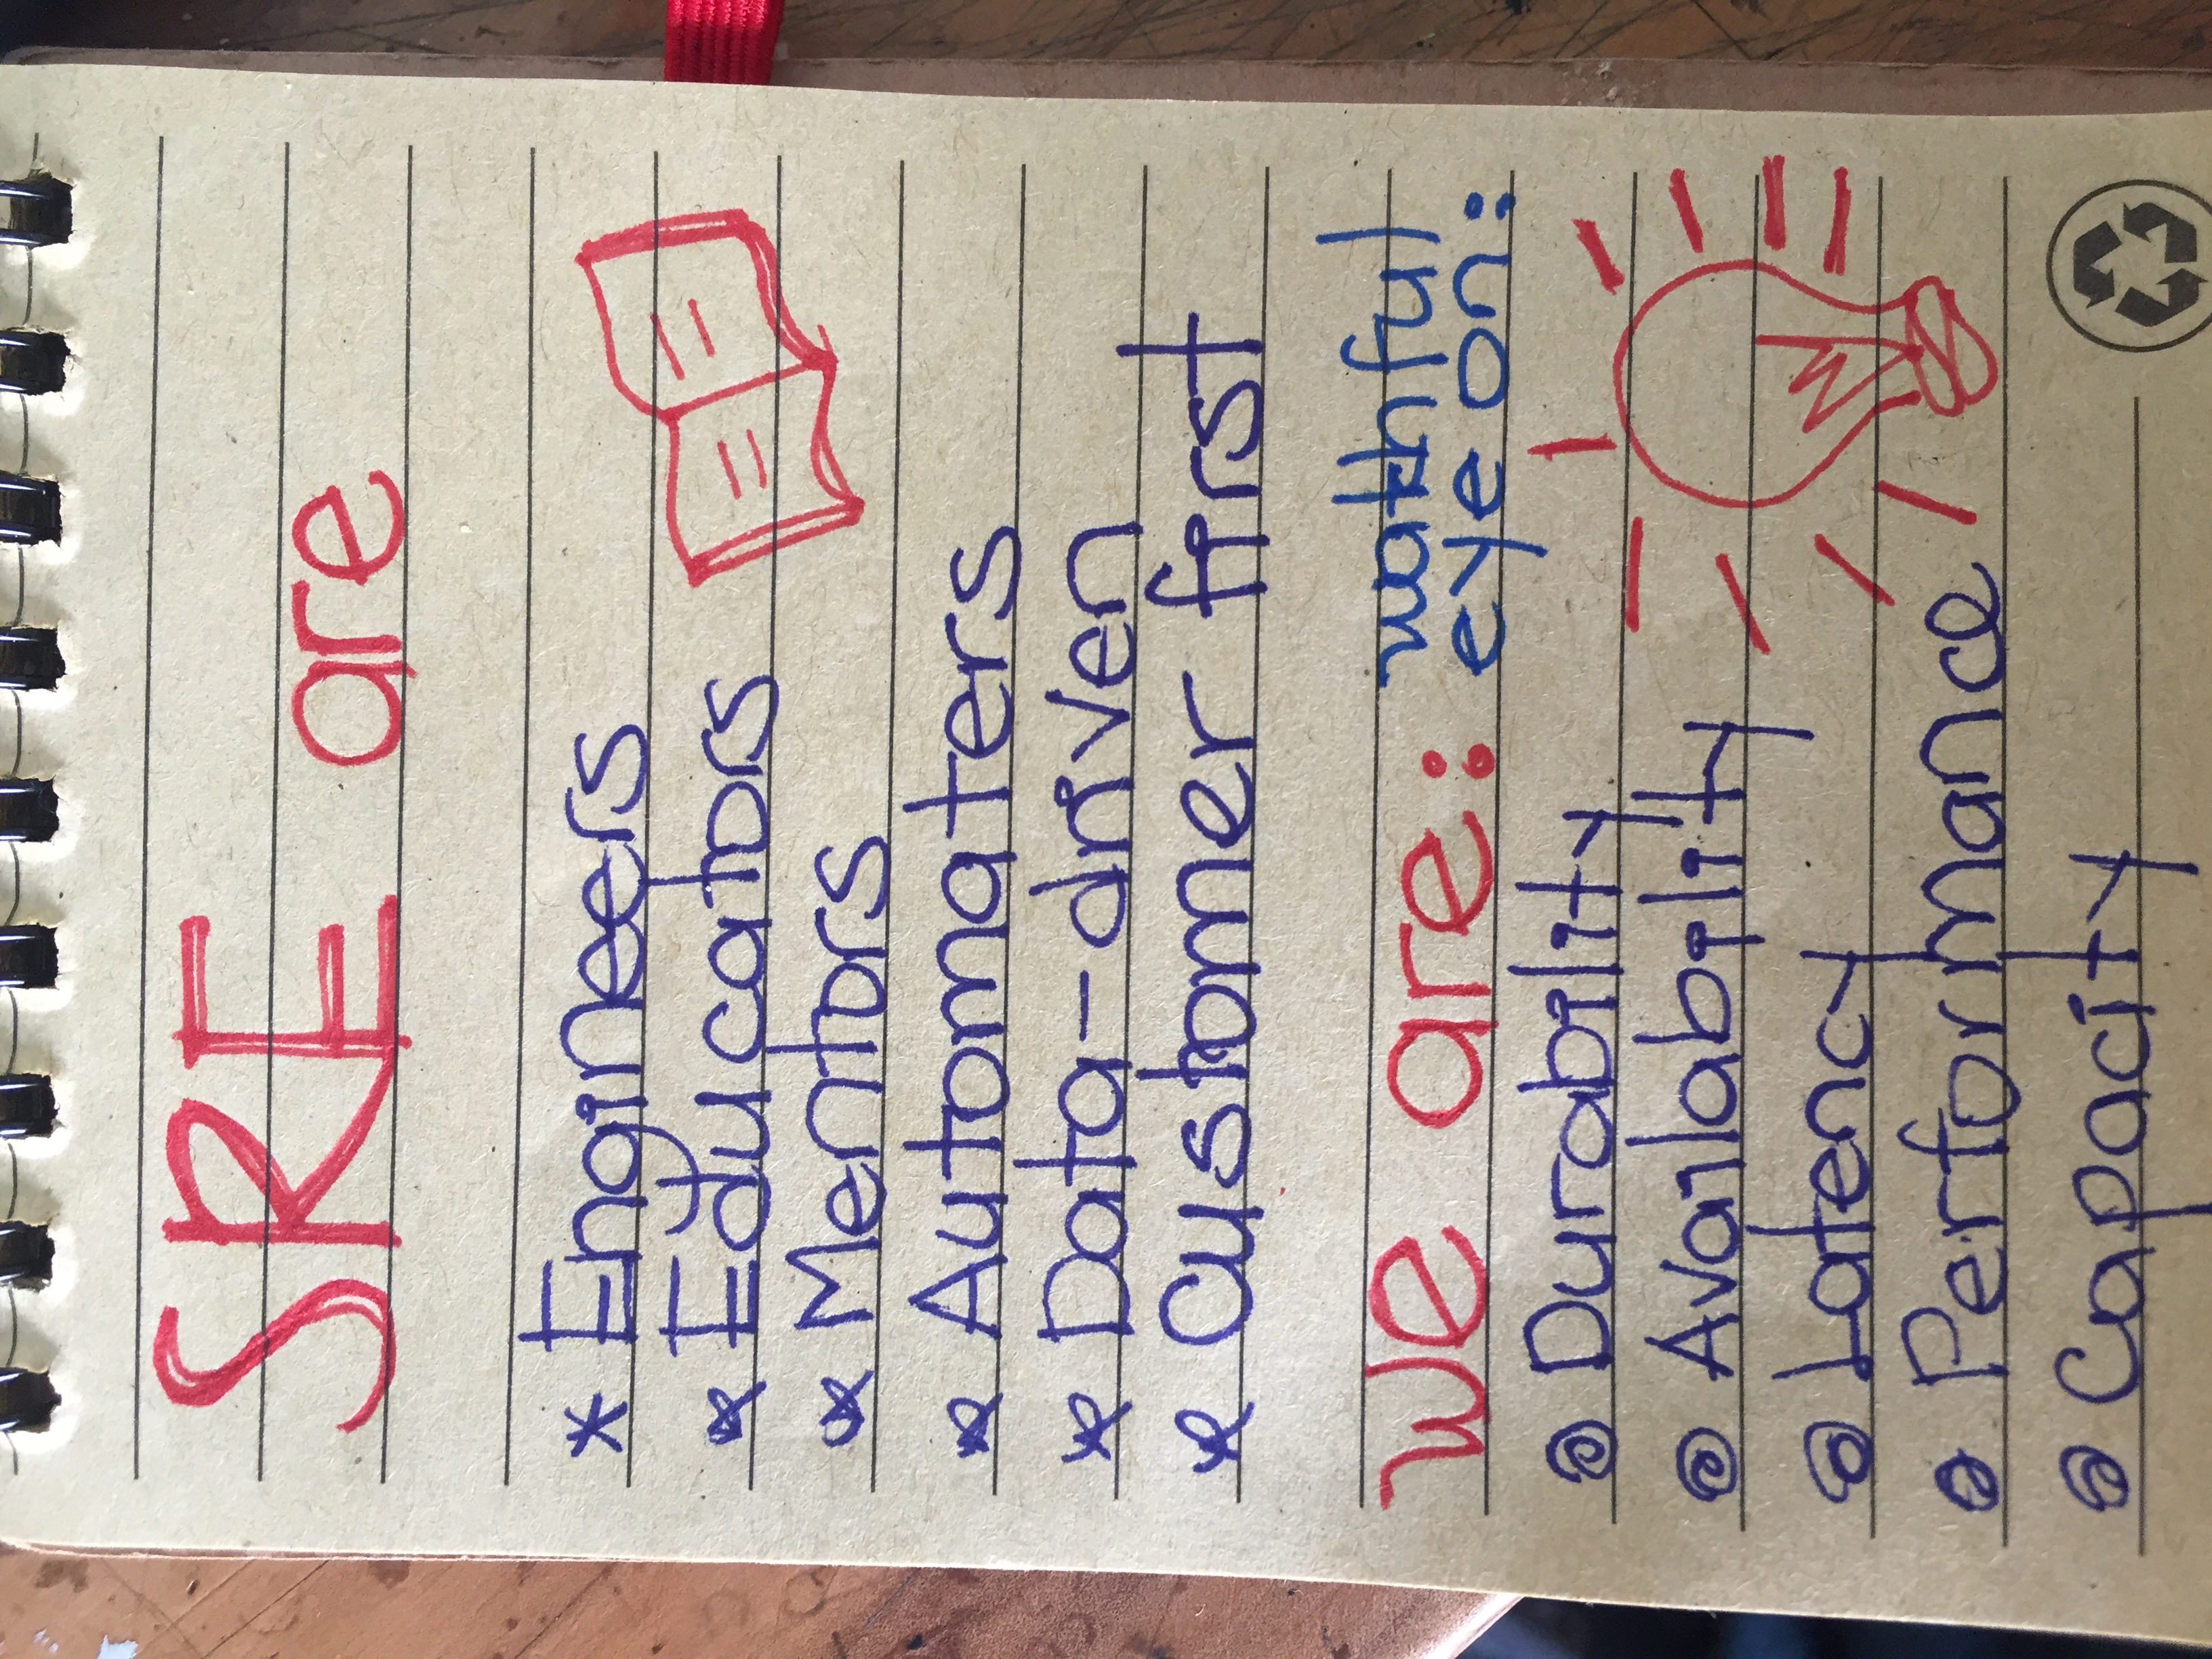 SRE are
* Engineers
* Educators
* Mentors
* Automaters
* Data-driven
* Customer first
We are: watchful
eye on:
Durability
Availability
Latency
Performance
Capacity